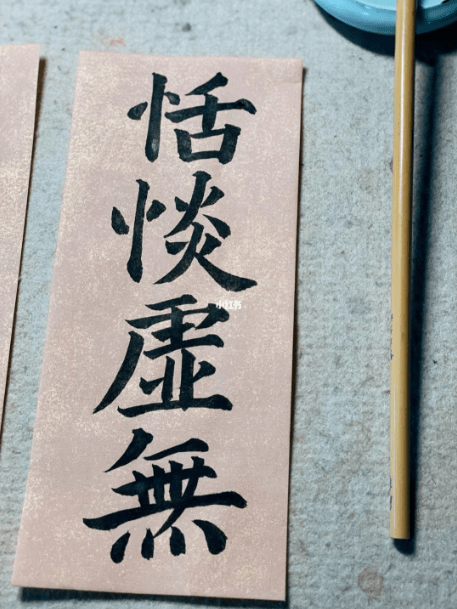 恬惔虛無
小红书